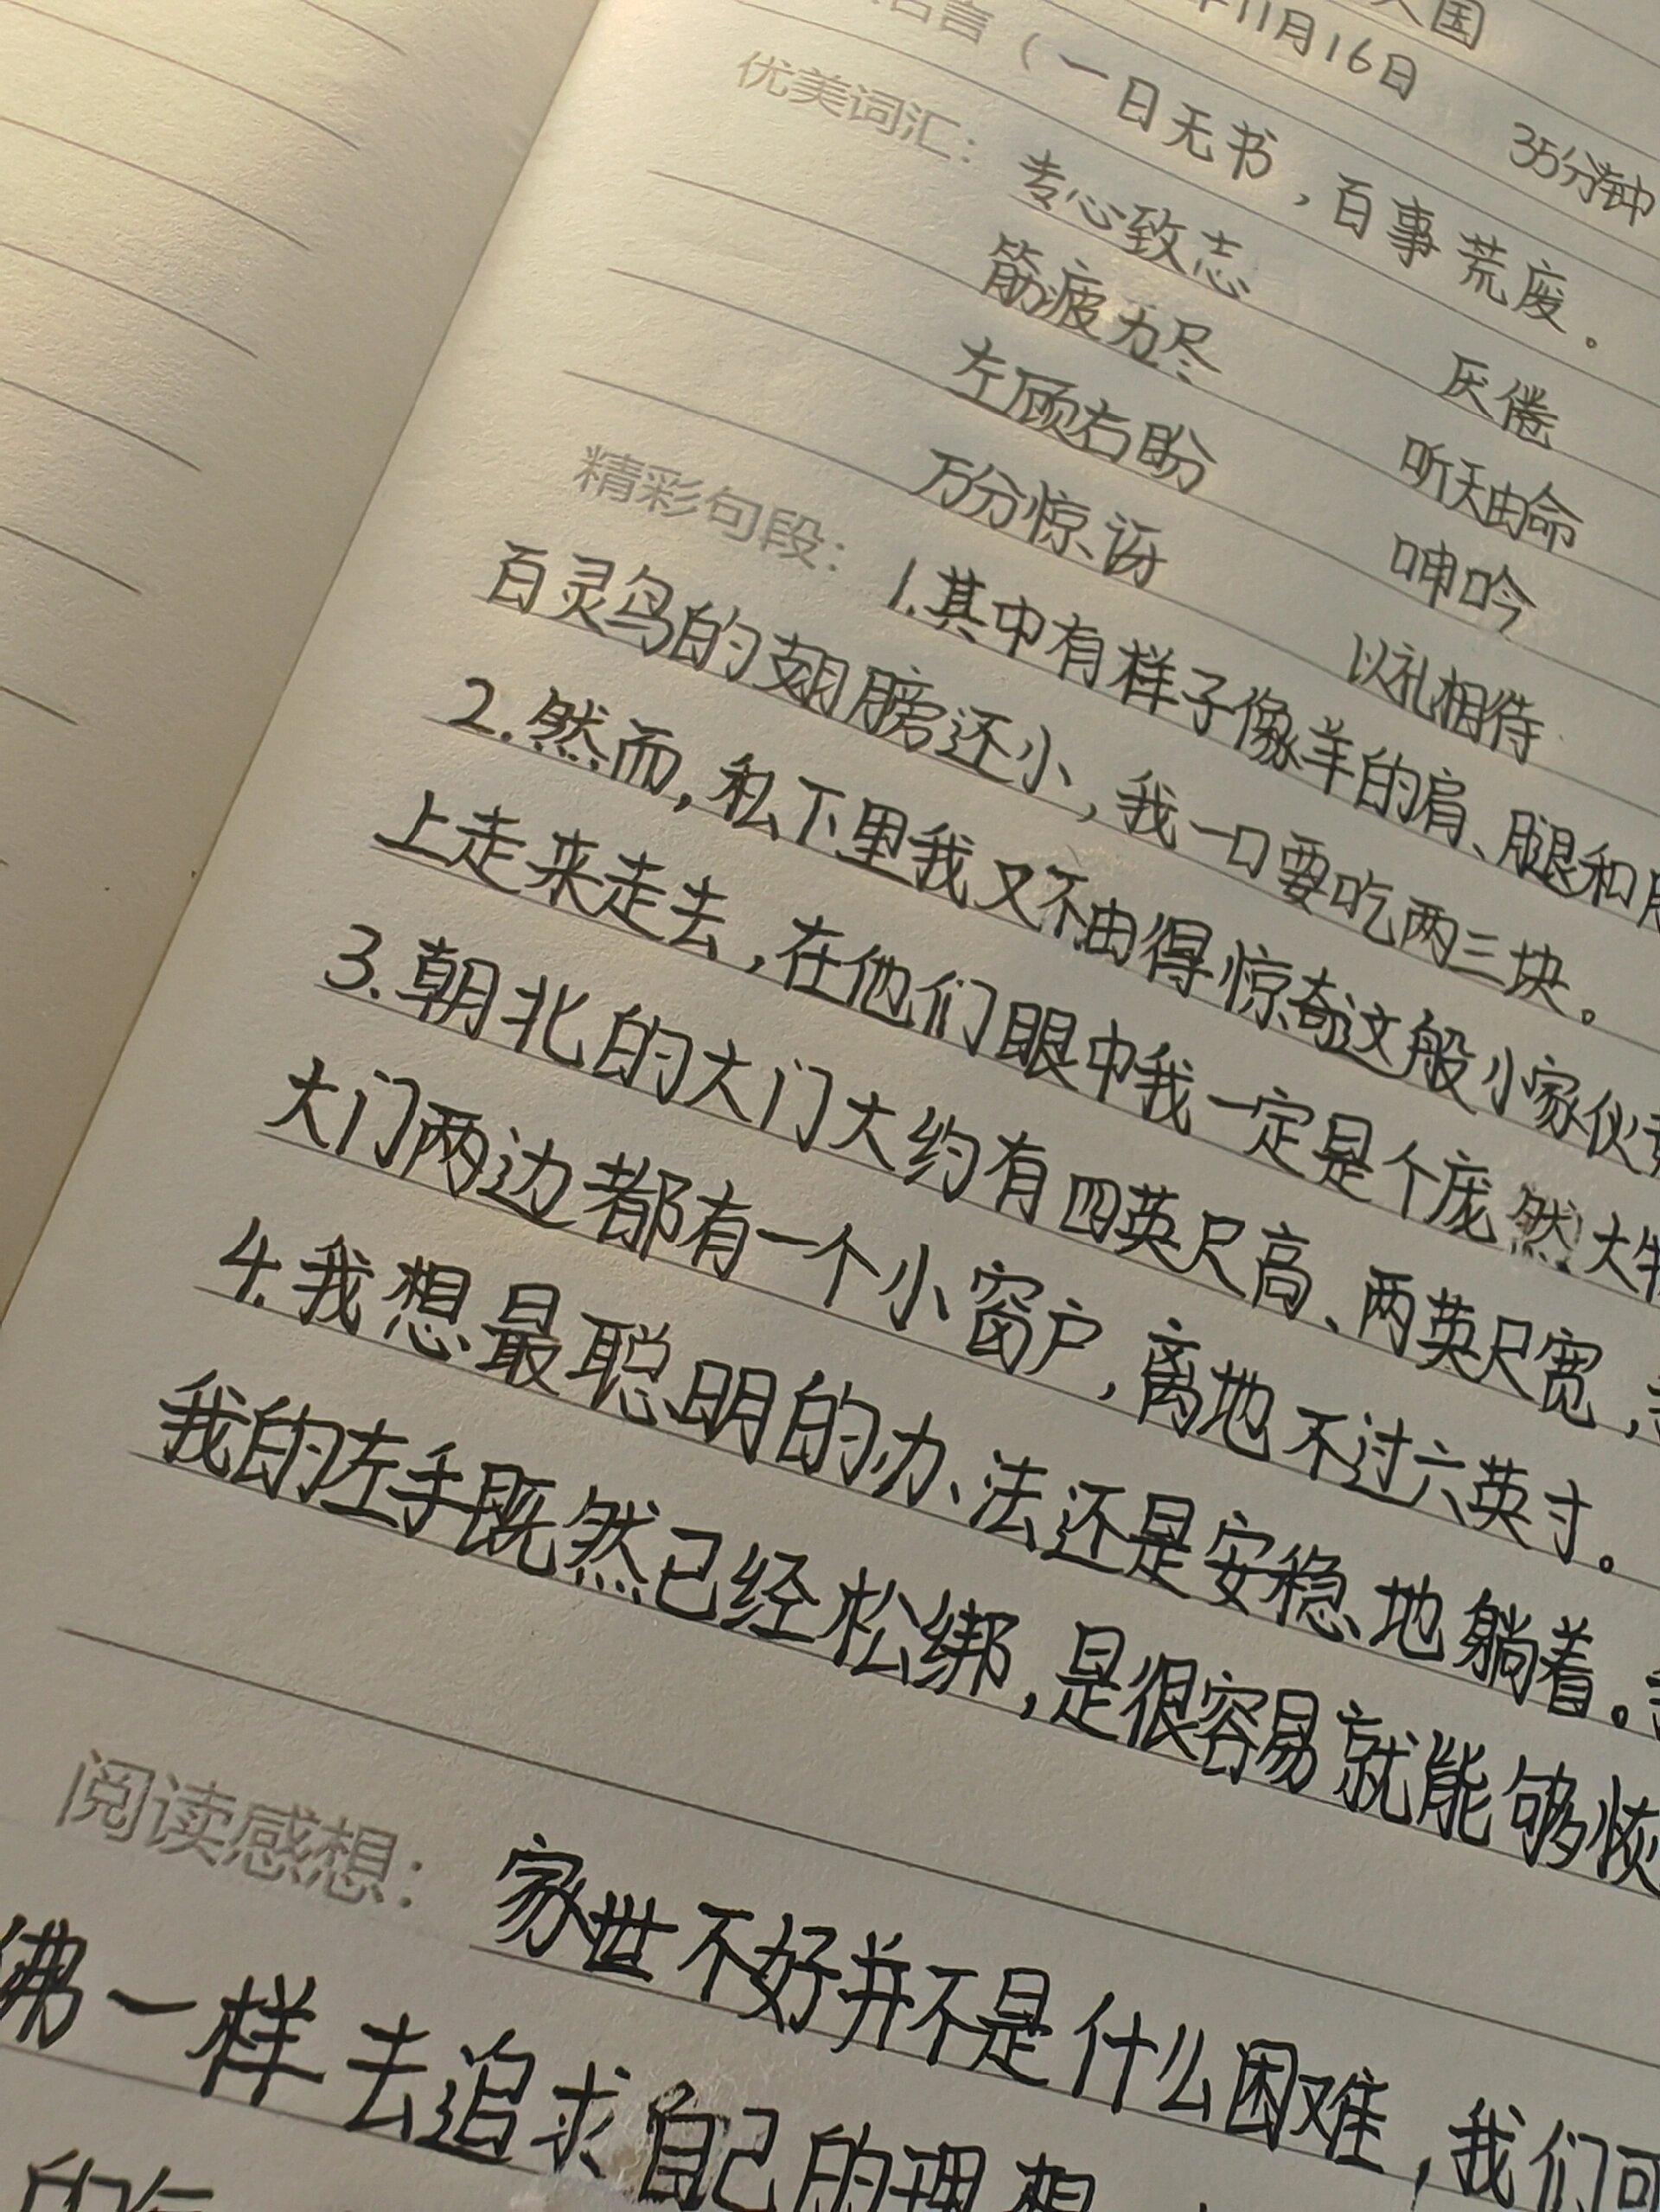 人国
年11月16日 35分钟
名言（一日无书，百事荒废。
优美词汇： 专心致志 厌倦
筋疲力尽 听天由命
左顾右盼 呻吟
万分惊讶 以礼相待
精彩句段： 1.其中有样子像羊的肩、腿和
百灵鸟的翅膀还小，我一口要吃两三块。
2.然而，私下里我又不由得惊奇这般小家伙
上走来走去，在他们眼中我一定是个庞然大物
3.朝北的大门大约有四英尺高、两英尺宽，
大门两边都有一个小窗户，离地不过六英寸。
4.我想最聪明的办法还是安稳地躺着。
我的左手既然已经松绑，是很容易就能够恢
阅读感想： 家世不好并不是什么困难，我们可
佛一样去追求自己的理想